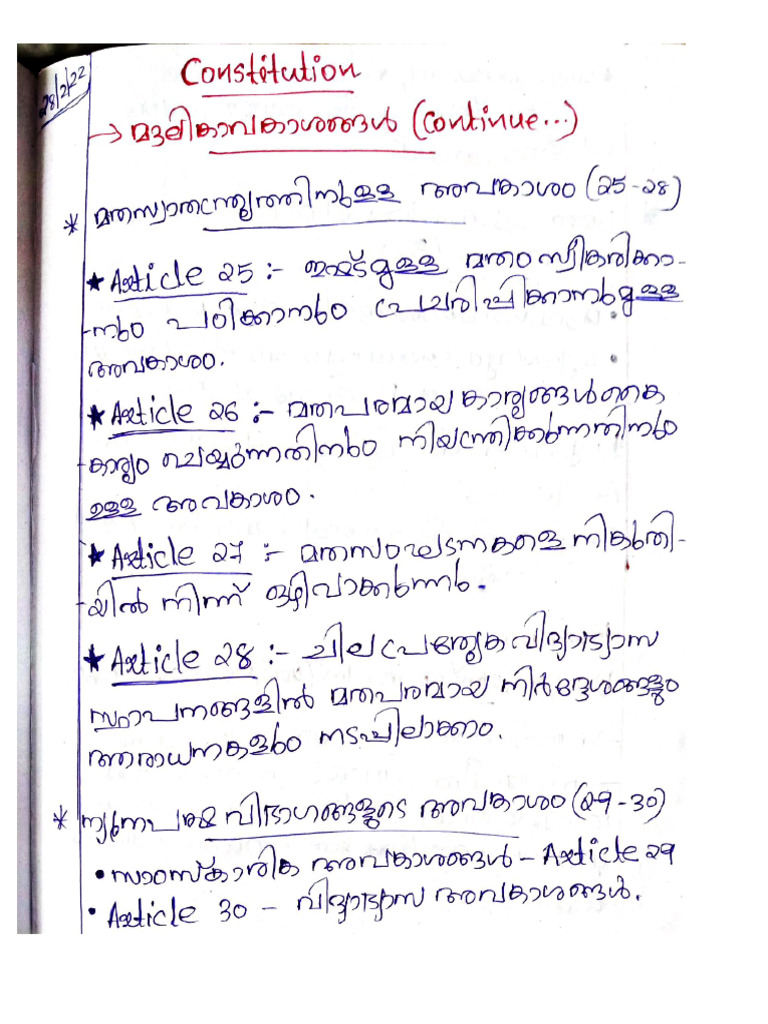 28/2/22
Constitution
→ മൗലികാവകാശങ്ങൾ (Continue...)
* മതസ്വാതന്ത്ര്യത്തിനുള്ള അവകാശം (25-28)
★ Article 25 :- ഇഷ്ടമുള്ള മതം സ്വീകരിക്കാ-
നും പഠിക്കാനും പ്രചരിപ്പിക്കാനുമുള്ള
അവകാശം.
★ Article 26 :- മതപരമായ കാര്യങ്ങൾ കൈ
കാര്യം ചെയ്യുന്നതിനും നിയന്ത്രിക്കുന്നതിനും
ഉള്ള അവകാശം.
★ Article 27 :- മതസംഘടനകളെ നികുതി-
യിൽ നിന്ന് ഒഴിവാക്കുന്നു.
★ Article 28 :- ചില പ്രത്യേക വിദ്യാഭ്യാസ
സ്ഥാപനങ്ങളിൽ മതപരമായ നിർദ്ദേശങ്ങളും
ആരാധനകളും നടപ്പിലാക്കാം.
* ന്യൂനപക്ഷ വിഭാഗങ്ങളുടെ അവകാശം (29-30)
• സാംസ്കാരിക അവകാശങ്ങൾ - Article 29
• Article 30 - വിദ്യാഭ്യാസ അവകാശങ്ങൾ.